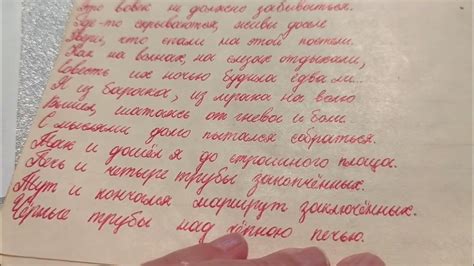 Это вовек не должно забываться.
Где-то скрываются, живы доселе
Звери, что спали на этой постели.
Как на волнах, на слизах отдыхали,
Совесть их ночью будила едва ли...
Я из бараков, из мрака на волю
Вышел, шатаясь от гнева и боли.
С мыслями долго пытался собраться.
Так и дошёл я до страшного плаца.
Печь и четыре трубы закопчённых.
Тут и кончался маршрут заключённых.
Чёрные трубы над чёрною печью.